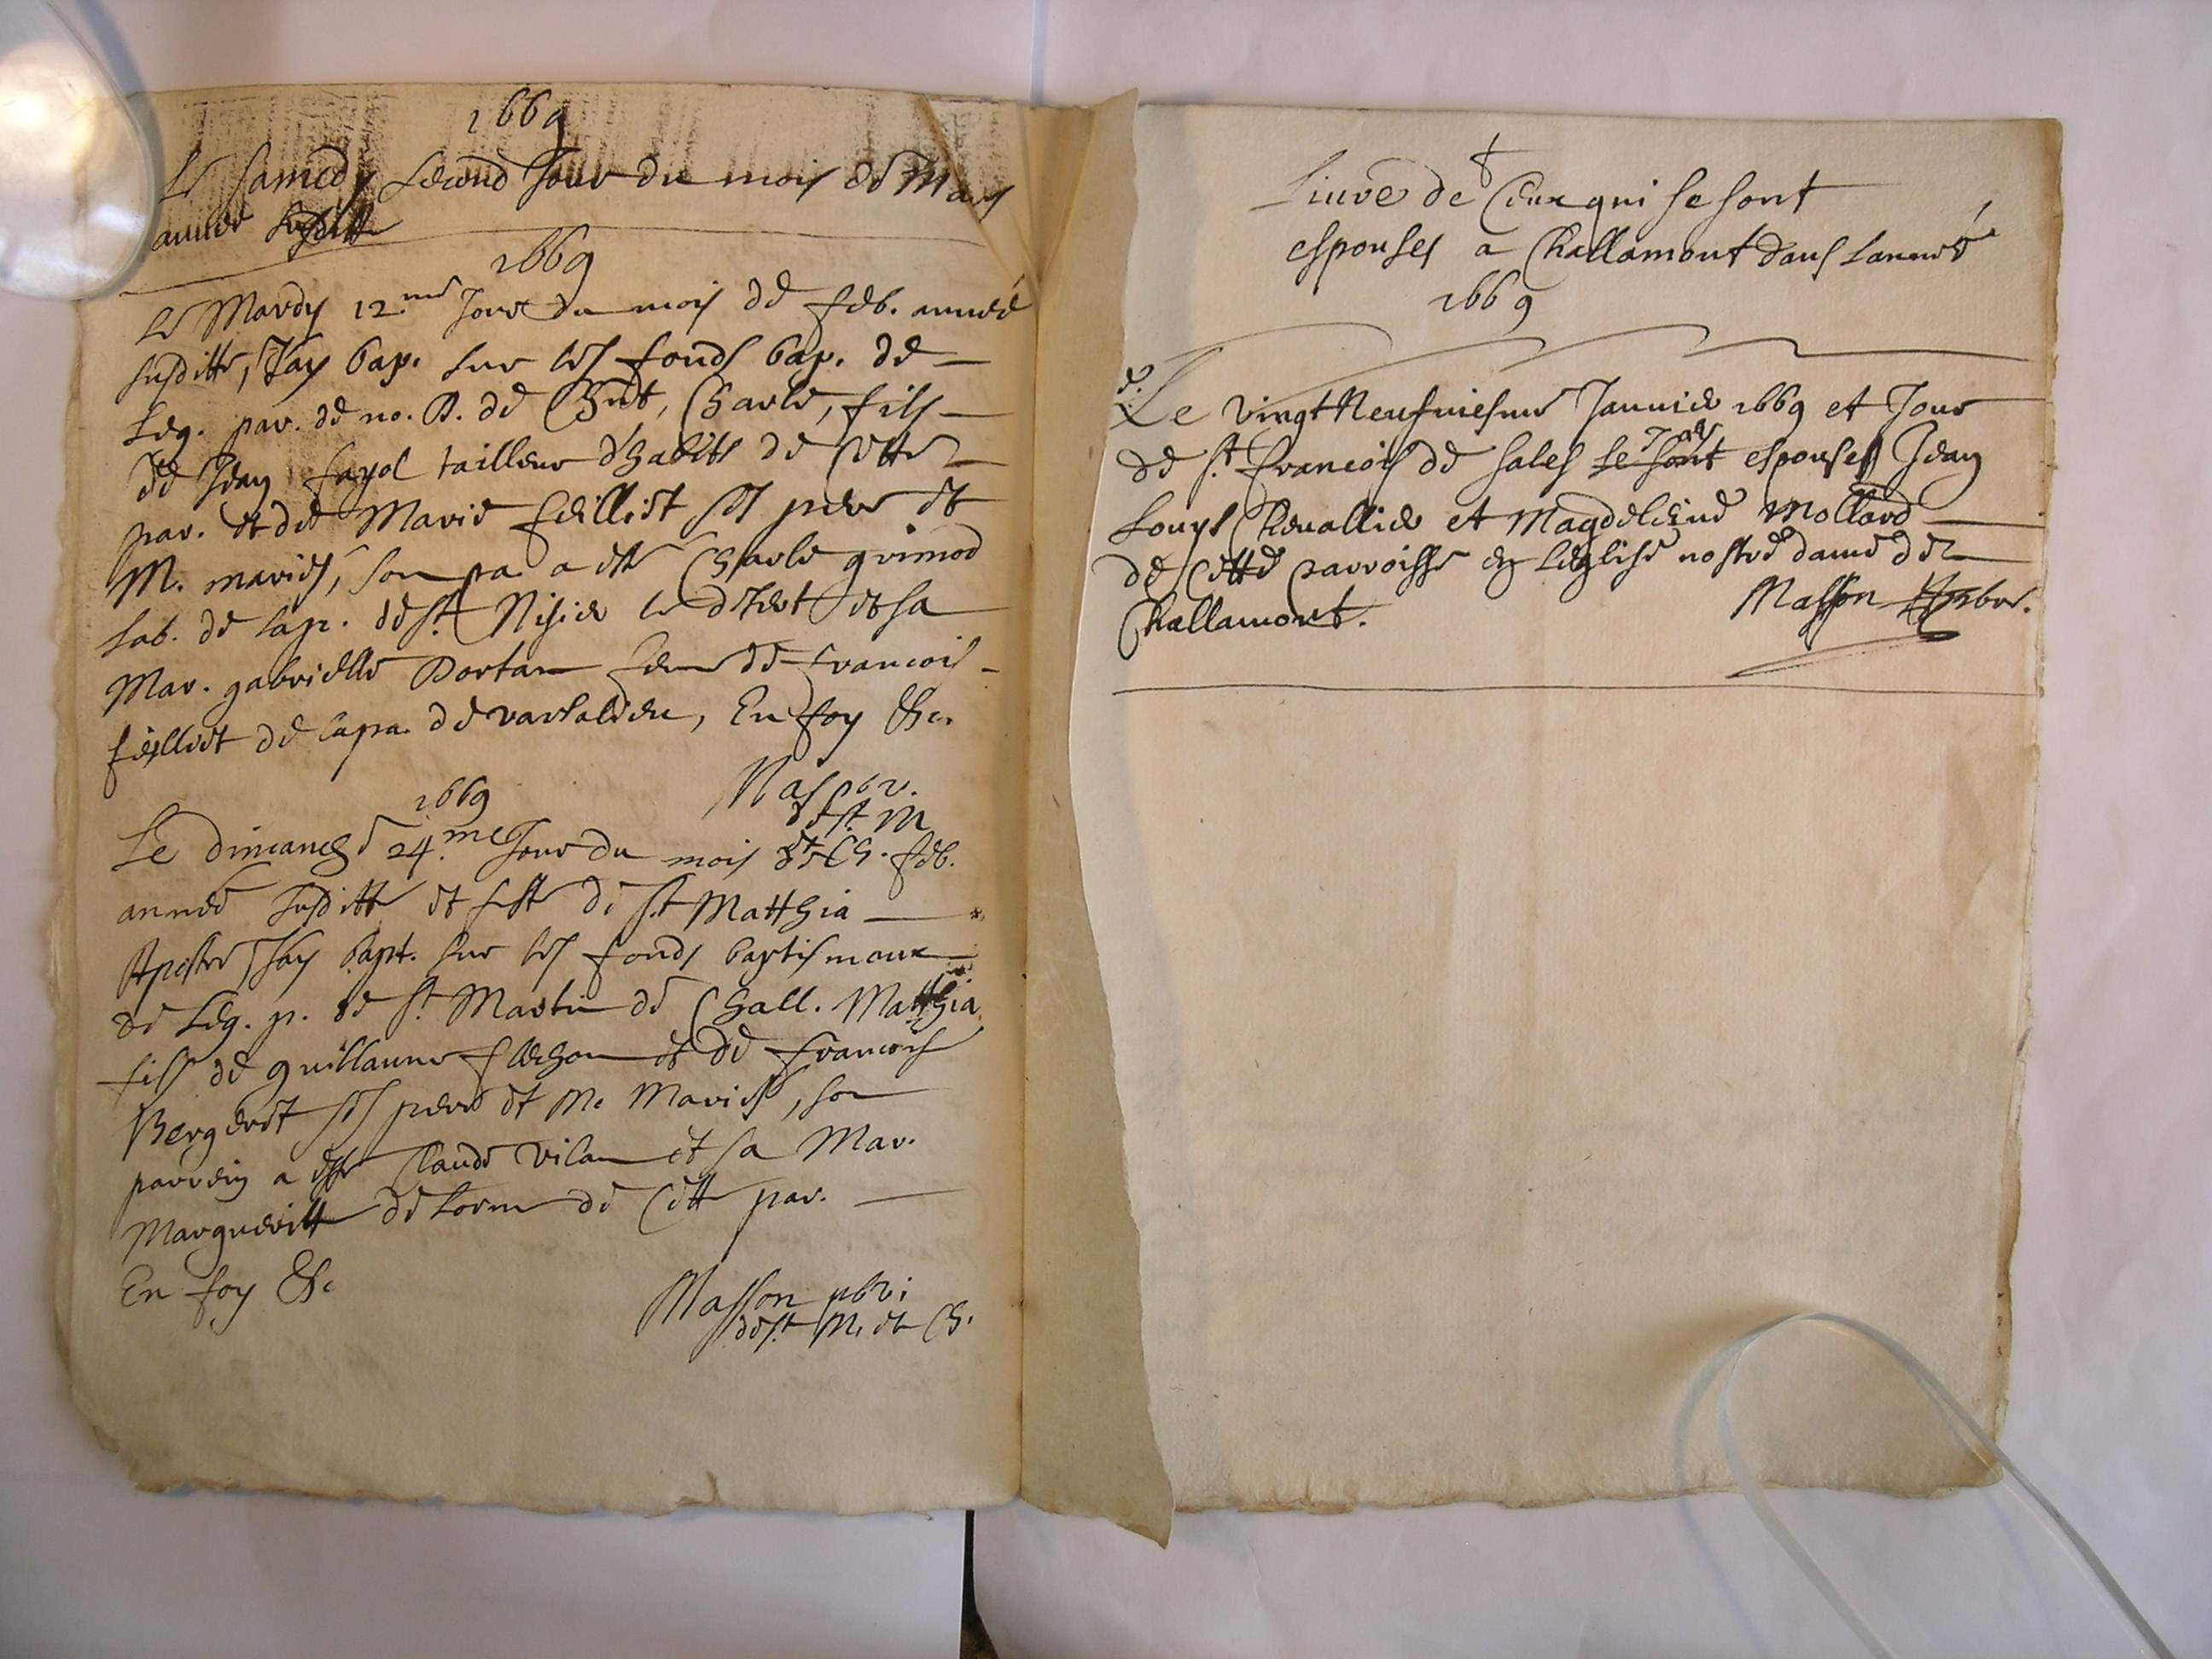 1669
Le samedy second Jour du mois de Mars
année susditte
1669
Le Mardy 12.me Jour du mois de feb. année
susditte, Jay bap. sur les fonds bap. de
Leg. par. de no. D. de Chnt, Charle, fils
de Jean fayol tailleur d'habits de Cette
par. et de Marie feilliet ses pere et
M. mariés, son pa a esté Charle grimod
lab. de la p. de st Nisier le desert et sa
Mar. gabrielle Dortan fem de francois
feilliet de la pa. de varsalieu, En foy &c.
Mas pbr.
de st. M
et Ch.
1669
Le dimanche 24.me Jour du mois de feb.
année susditte et feste de st Matthia
Apostre Jay bapt. sur les fonds baptismaux
de Leg. p. de st Martin de Chall. Matthia
fils de guillaume flechon et de francoise
Bergeret ses pere et M. Mariés, son
parrein a esté Claude vilan et sa Mar.
Margueritte de lorm de Cette par.
En foy &c
Masson pbr
de st M. et Ch.
Liure de Ceux qui se sont
espouses a Challamont dans Lanneé
1669
Le vingt Neufuiesme Januier 1669 et Jour
de st. francois de sales se sont espouses Jean
Louys Cheuallier et Magdeleine Mollard
de Cette parroisse en Leglise nostre dame de
Challamont.
Masson pbr.